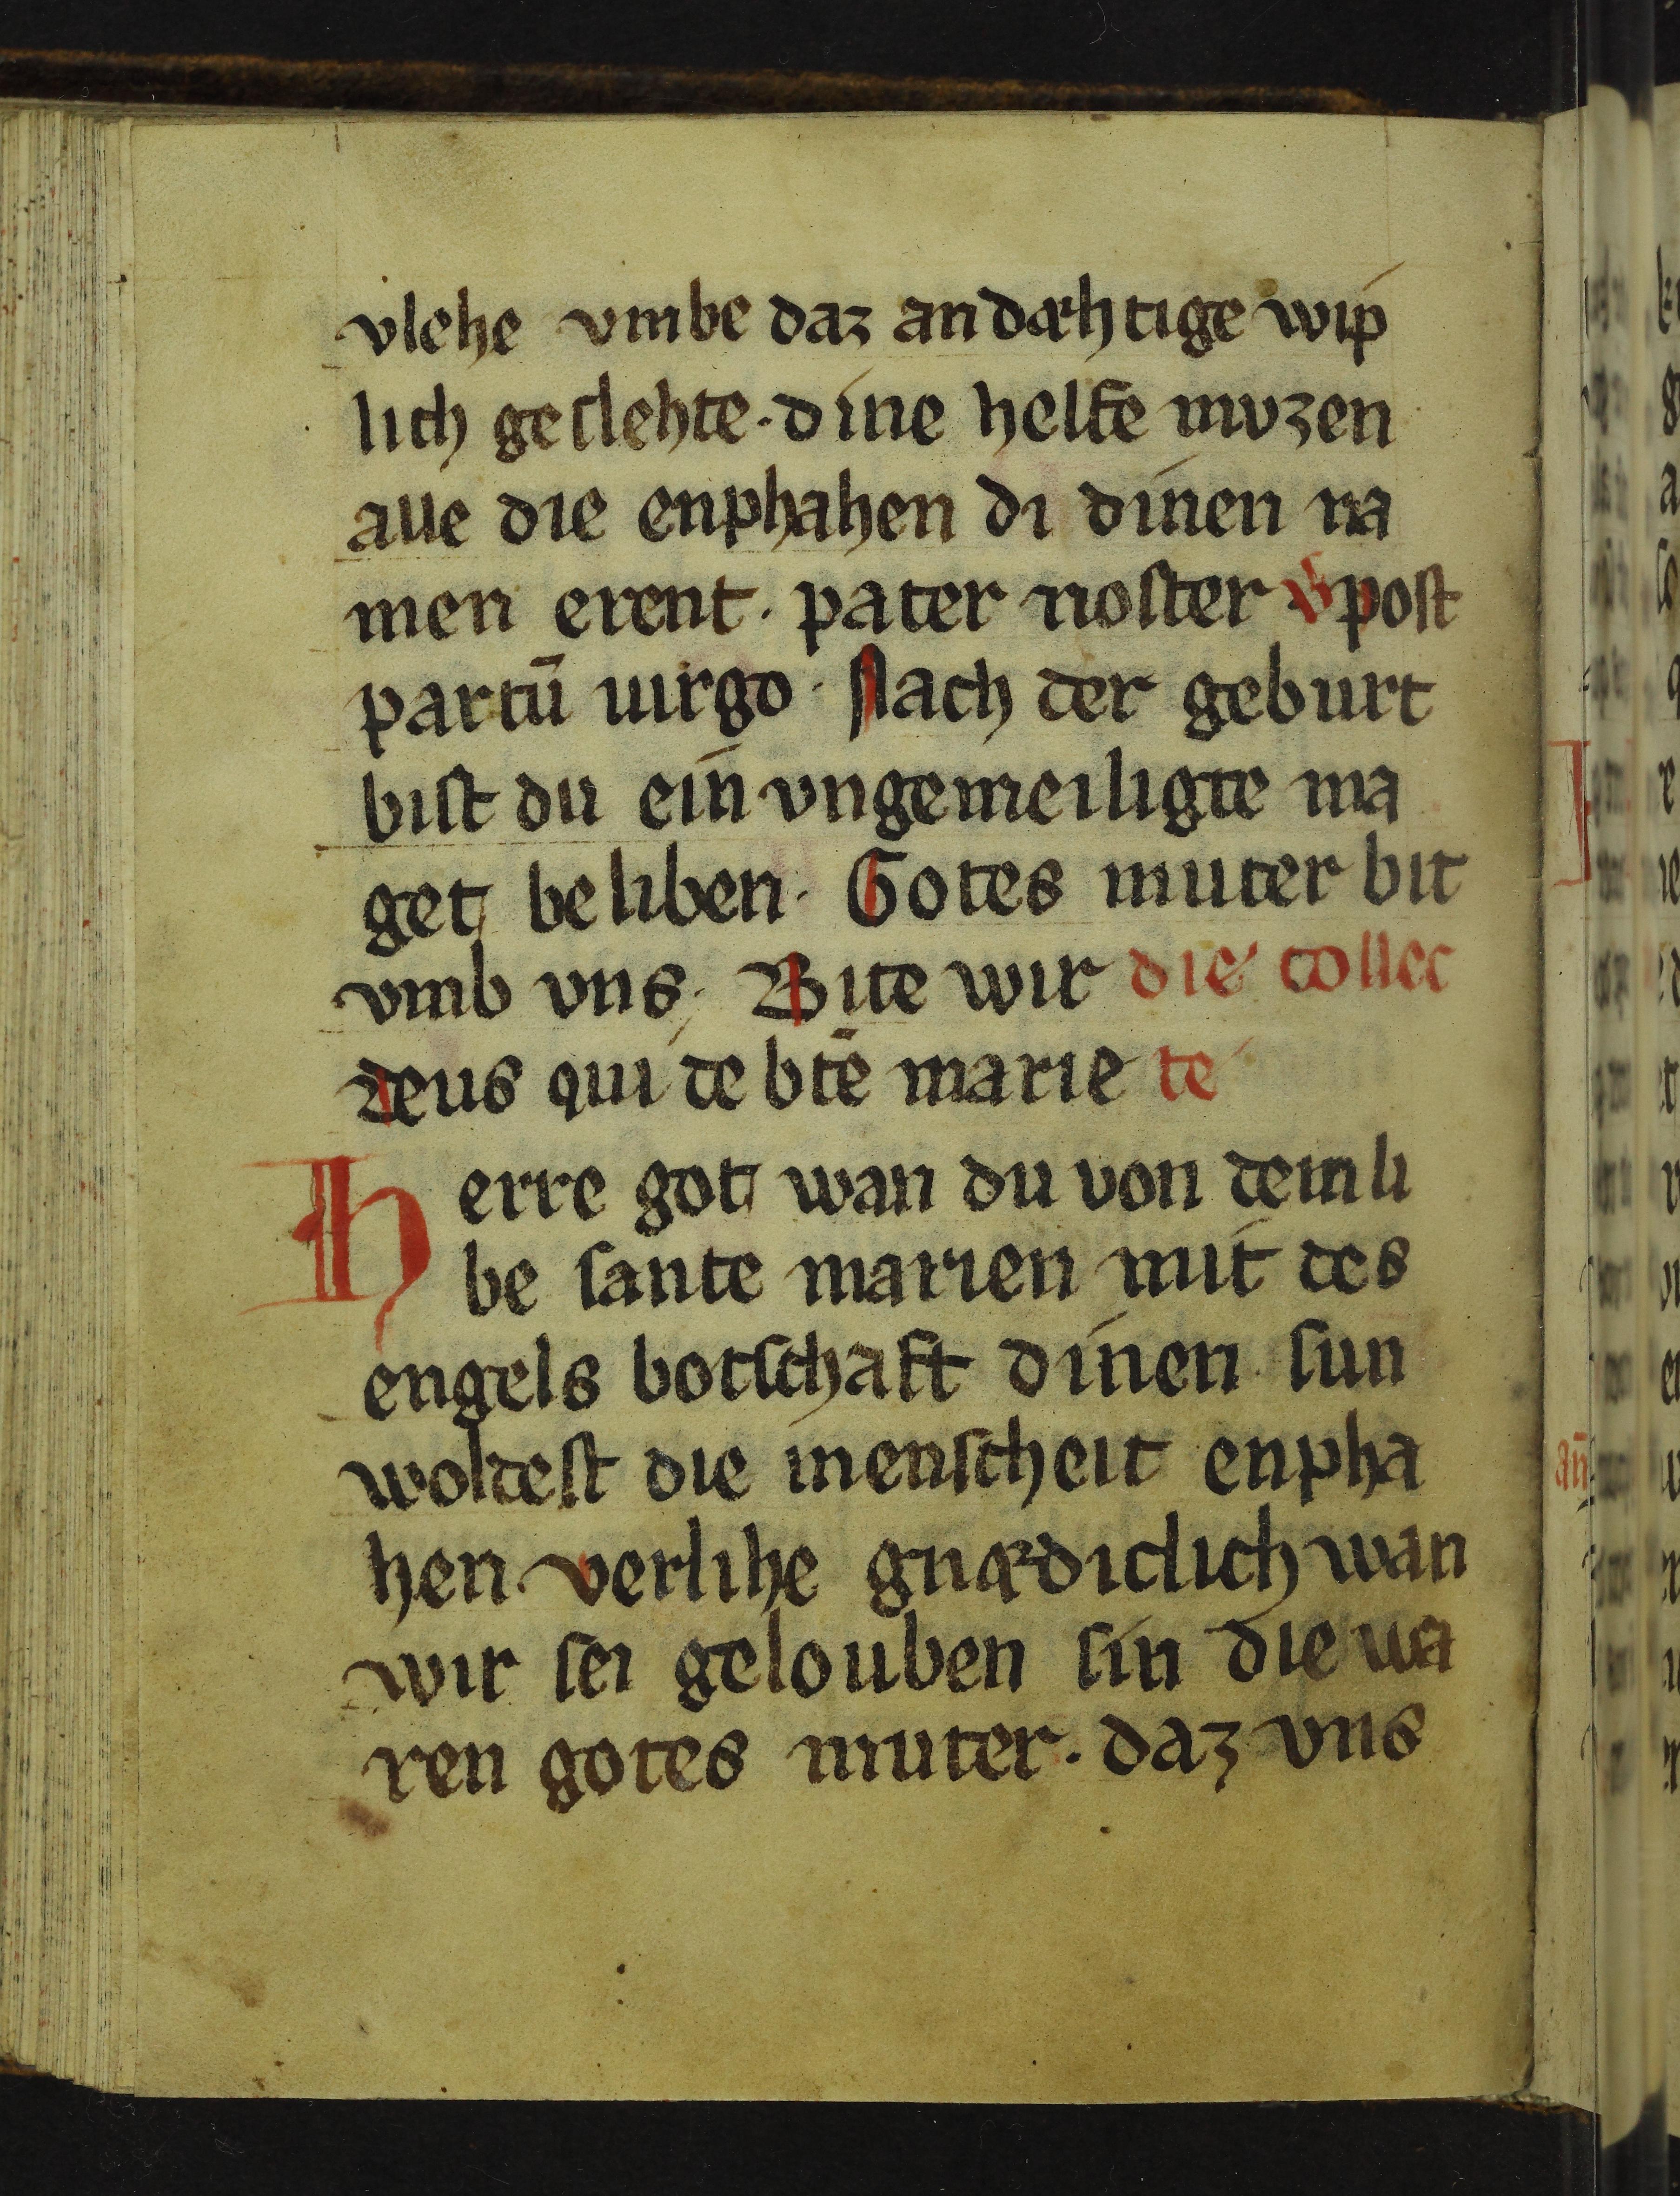 vlehe vmbe daz andæhtige wip
lich geslehte. dine helfe mvzen
alle die enphahen di dinen na
men erent. pater noster V post
partū uirgo. Nach der geburt
bist du ein vngemeiligte ma
get beliben. Gotes muter bit
vmb vns. Bite wir die collec
deus qui de btē marie te
Herre got wan du von dem li
be sante marien mit des
engels botschaft dinen sun
woldest die menscheit enpha
hen. verlihe gnædiclich wan
wir sei gelouben sin die wa
ren gotes muter. daz vns